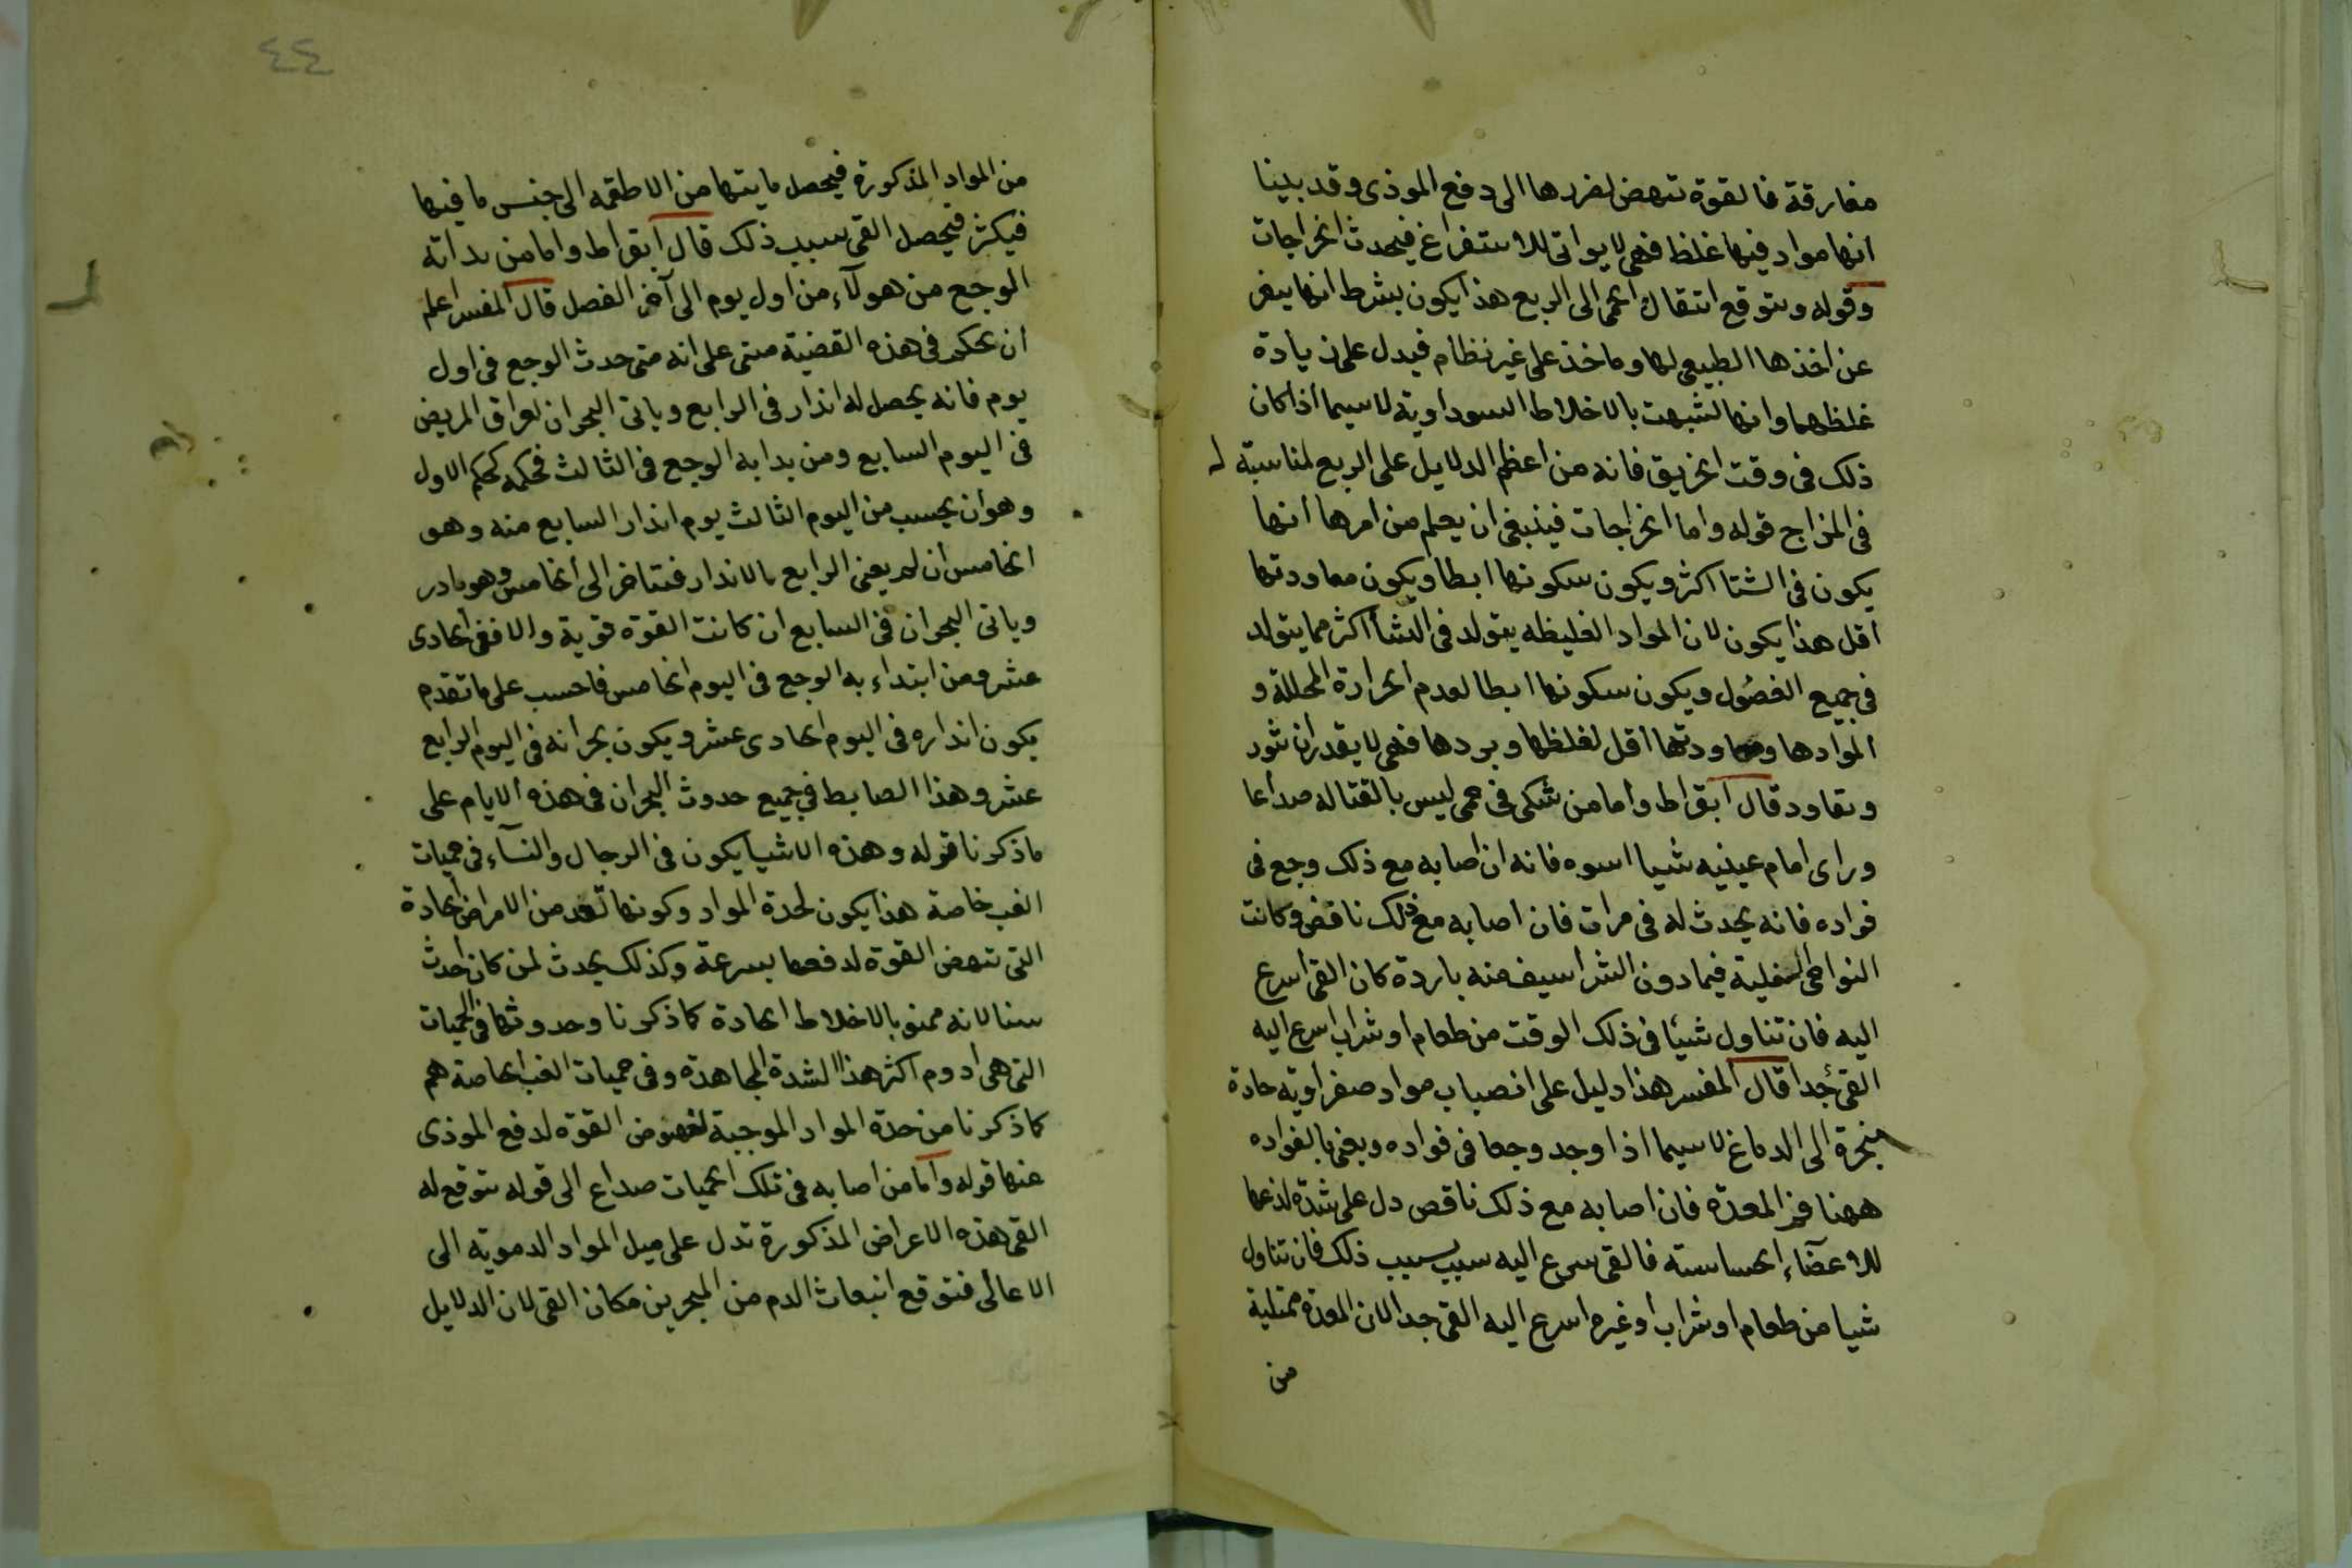 مفارقة فالقوة تنهض لضررها الى دفع الموذى وقد بينا
انها مواد فيها غلظ فهى لا يواتى للاستفراغ فيحدث الخراجات
وقوله ويتوقع انتقال الحمى الى الربع هذا يكون بشرط انها
عن اخذها الطبيعى لها وياخذ على غير نظام فيدل على زيادة
غلظهما وانها لتشبهت بالاخلاط السوداوية لاسيما اذا كان
ذلك فى وقت الخريف فانه من اعظم الدلايل على الربع لمناسبته له
فى المزاج قوله واما الخراجات فينبغى ان يعلم من امرها انها
يكون فى الشتا اكثر ويكون سكونها ابطا ويكون معاودتها
اقل هذا يكون لان المواد الغليظه يتولد فى الشتا اكثر مما يتولد
فى جميع الفصول ويكون سكونها ابطا لعدم الحرارة المحللة و
لموادها ومعاودتها اقل لغلظها وبردها فهى لا يقدر ان تثور
وتعاود قال ابقراط واما من شكى فى حمى ليس بالقتاله صداعا
وراى امام عينيه شيا اسوه فانه ان اصابه مع ذلك وجع فى
فواده فانه يحدث له فى مرات فان اصابه مع ذلك نافض وكانت
النواحى السفلية فيما دون الشراسيف منه باردة كان القى اسرع
اليه فان تناول شيئا فى ذلك الوقت من طعام او شراب اسرع اليه
القى جدا قال المفسر هذا دليل على انصباب مواد صفراويه حادة
منجرة الى الدماغ لاسيما اذا وجد وجعا فى فواده ويعنى بالفواده
ههنا فم المعدة فان اصابه مع ذلك ناقص دل على شدة لذعها
للاعضآء الحساسته فالقى سرع اليه سبب بسبب ذلك فان تناول
شيا من طعام او شراب او غيره اسرع اليه القى جدا لان المعدة ممتلية
من
٤٤
من المواد المذكورة فيحصل ما يتها من الاطقمه الى جنس ما فيها
فيكثر فيحصل القى بسبب ذلك قال ابقراط واما من بداته
الوجع من هولآء من اول يوم الى آخر الفصل قال المفسر اعلم
ان يحكم فى هذه القضية مبنى على انه متى حدث الوجع فى اول
يوم فانه يحصل له انذار فى الرابع وياتى البحران لعراق المريض
فى اليوم السابع ومن بدا به الوجع فى الثالث فحكمه كحكم الاول
وهو ان يحسب من اليوم الثالث يوم انذار السابع منه وهو
الخامس ان لم يعنى الرابع بالانذار فتتاخر الى الخامس وهو نادر
وياتى البحران فى السابع ان كانت القوة قوية والا ففى الحادى
عشر ومن ابتداء به الوجع فى اليوم الخامس فاحسب على ما تقدم
يكون انذاره فى اليوم الحادى عشر ويكون بحرانه فى اليوم الرابع
عشر وهذا الضابط فى جميع حدوث البحران فى هذه الايام على
ما ذكرنا قوله وهذه الاشيا يكون فى الرجال والنسآء فى حميات
الغب خاصة هذا يكون لحدة المواد وكونها تعد من الامراض الحادة
التى تنهض القوة لدفعها بسرعة وكذلك يحدث لمن كان احدث
سنا لانه ممنو بالاخلاط الحادة كما ذكرنا وحدوثها فى الحميات
التى هى ادوم اكثر هذا لشدة المجاهدة وفى حميات الغب الخاصة هم
كما ذكرنا من حدة المواد الموجبة لنهوض القوة لدفع الموذى
عنها قوله واما من اصابه فى تلك الحميات صداع الى قوله يتوقع له
القى هذه الاعراض المذكورة تدل على ميل المواد الدمويه الى
الاعالى فتوقع انبعاث الدم من المنخرين مكان القى لان الدلايل